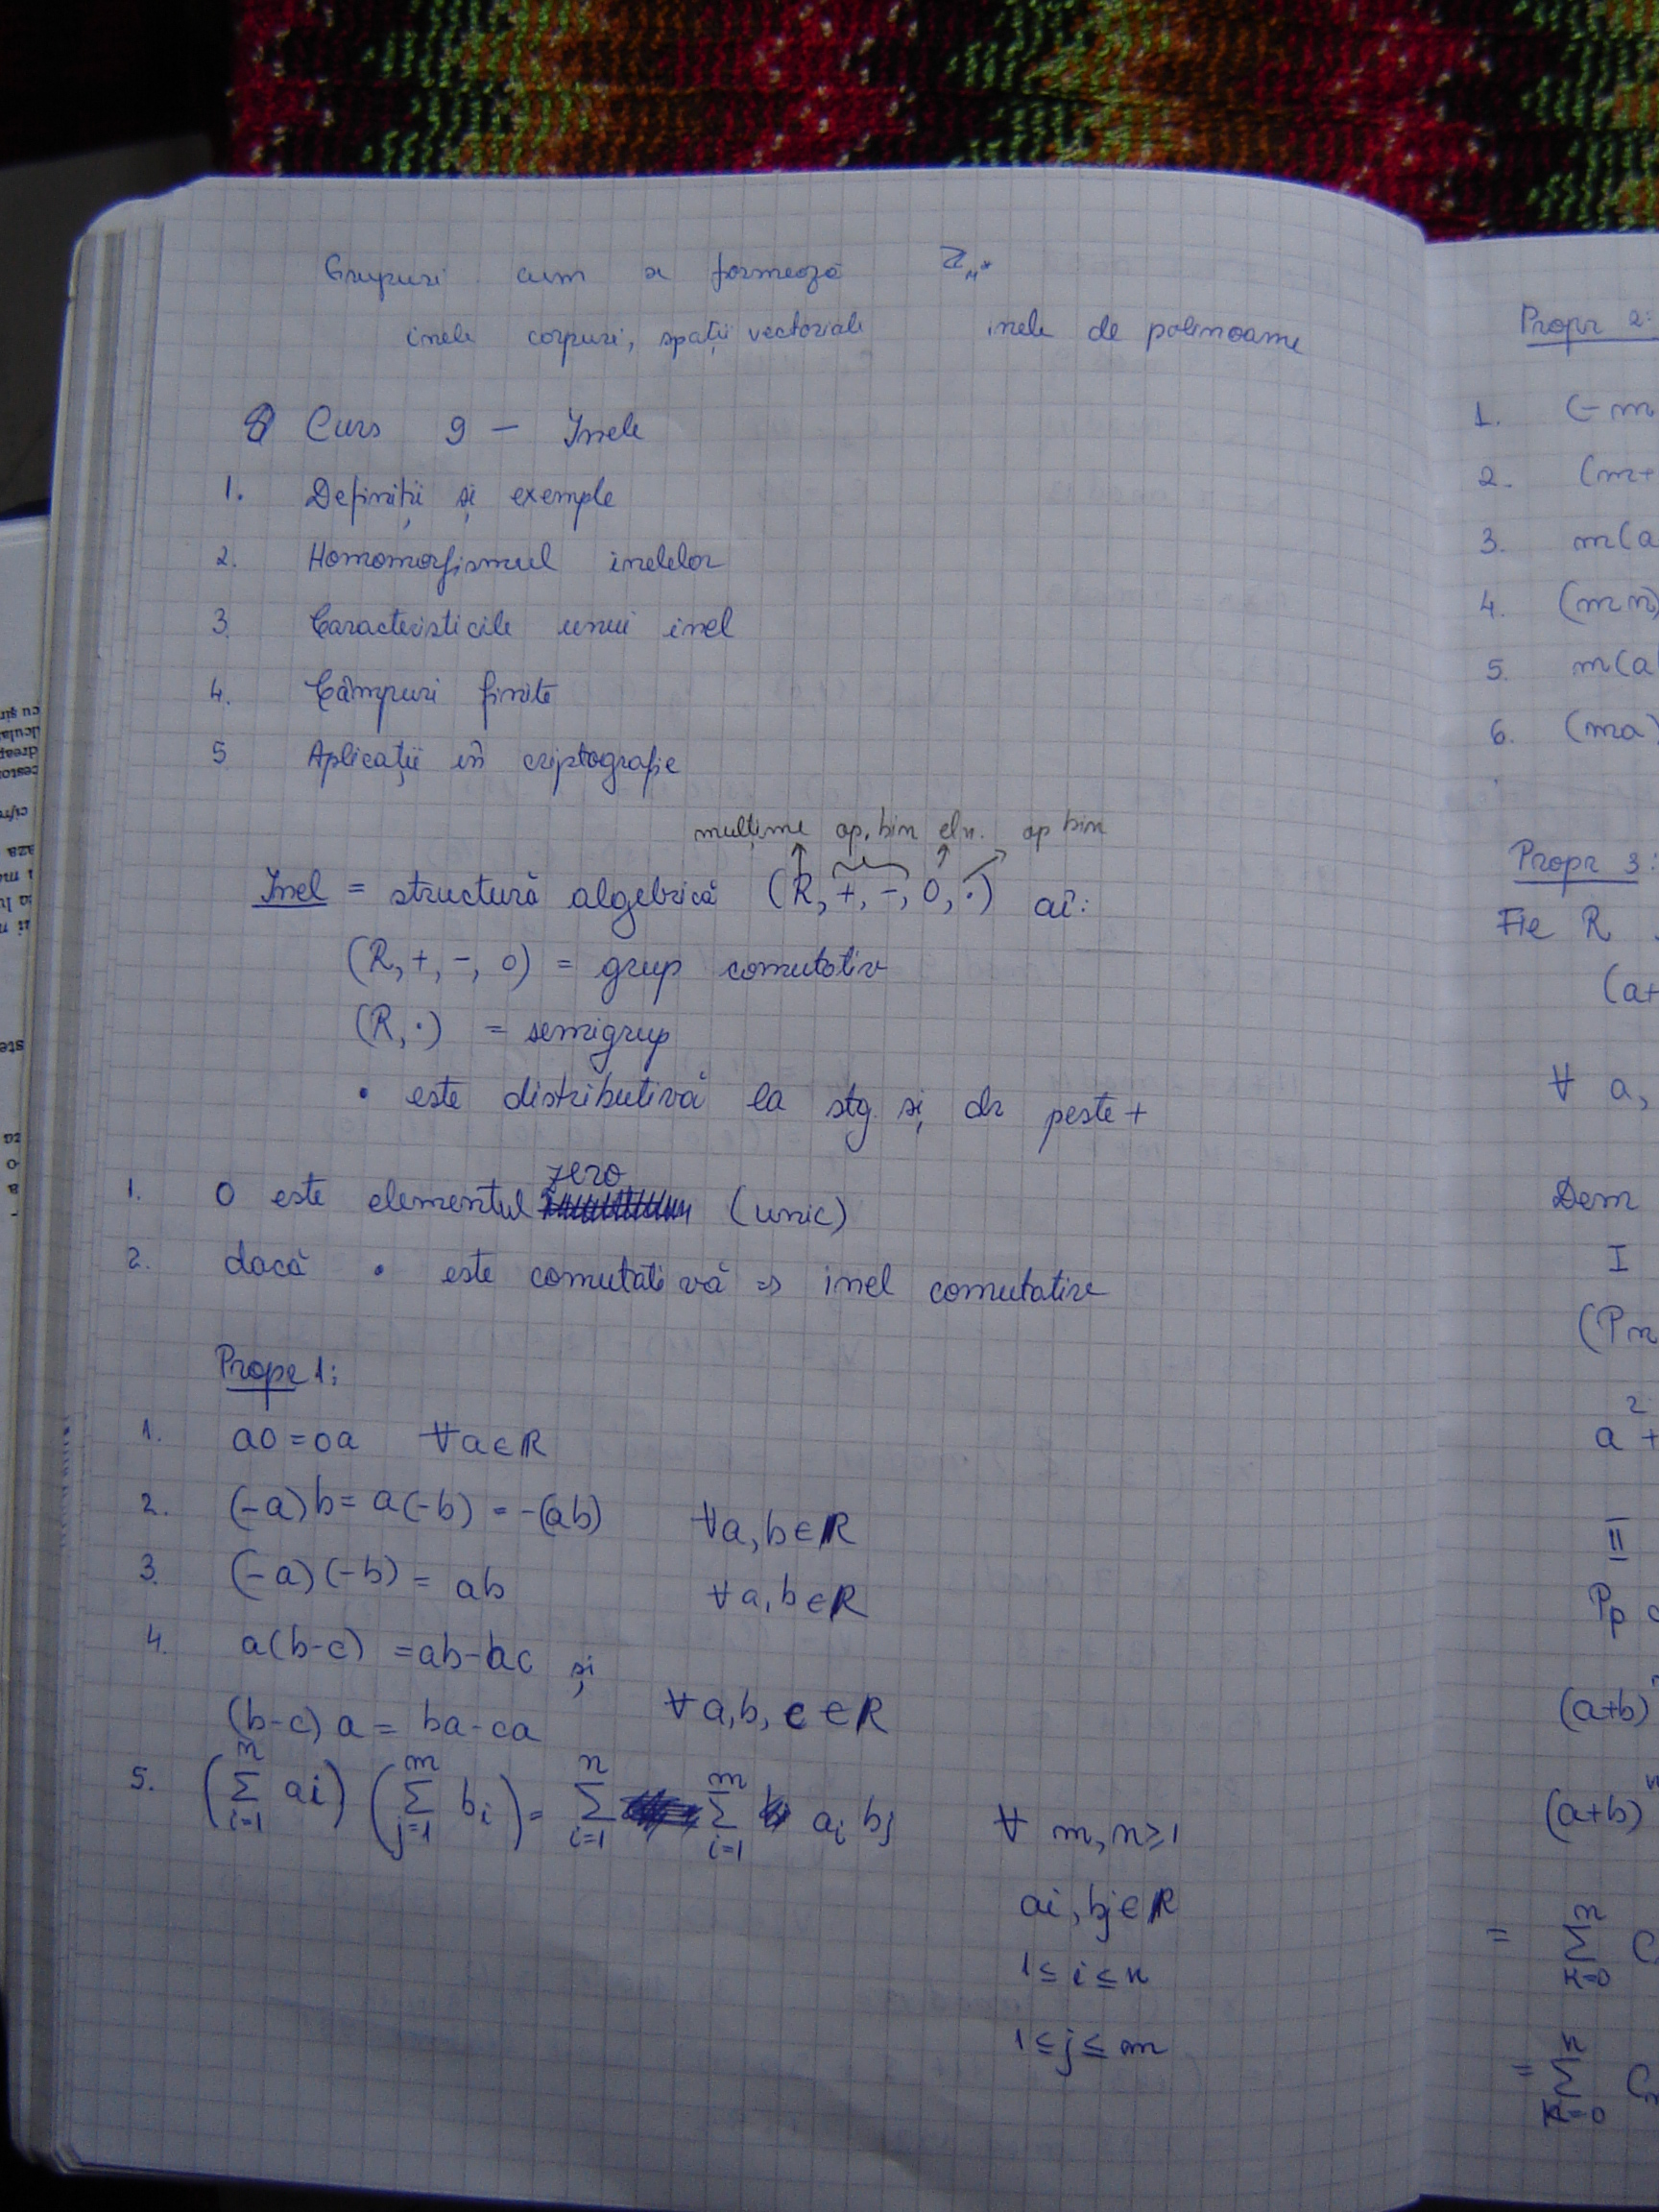 Grupuri cum se formează Zn*
inele corpuri, spații vectoriale inele de polinoame
Curs 9 – Inele
1. Definiții și exemple
2. Homomorfismul inelelor
3 Caracteristicile unui inel
4. Câmpuri finite
5 Aplicații în criptografie
mulțime op. bin eln. op bin
Inel = structură algebrică (R, +, -, 0, ·) aî:
(R, +, -, 0) = grup comutativ
(R, ·) = semigrup
• este distributivă la stg și dr peste +
zero
1. 0 este elementul (unic)
2. dacă • este comutativă => inel comutativ
Propr 1:
1. a0 = 0a ∀a∈R
2. (-a)b = a(-b) = -(ab) ∀a,b∈R
3. (-a)(-b) = ab ∀a,b∈R
4. a(b-c) = ab-ac și
(b-c)a = ba-ca ∀a,b,c∈R
5. (n Σ i=1 ai) (m Σ j=1 bi) = n Σ i=1 m Σ i=1 ai bj ∀ m,n≥1
ai, bj∈R
1≤i≤n
1≤j≤m
Propr 2:
1. (-m
2. (m+
3. m(a
4. (mn)
5. m(a
6. (ma)
Propr 3:
Fie R
(a+
∀ a,
Dem
I
(Pn
a² +
II
Pp
(a+b)
(a+b)
= n Σ k=0 C
= n Σ k=0 C